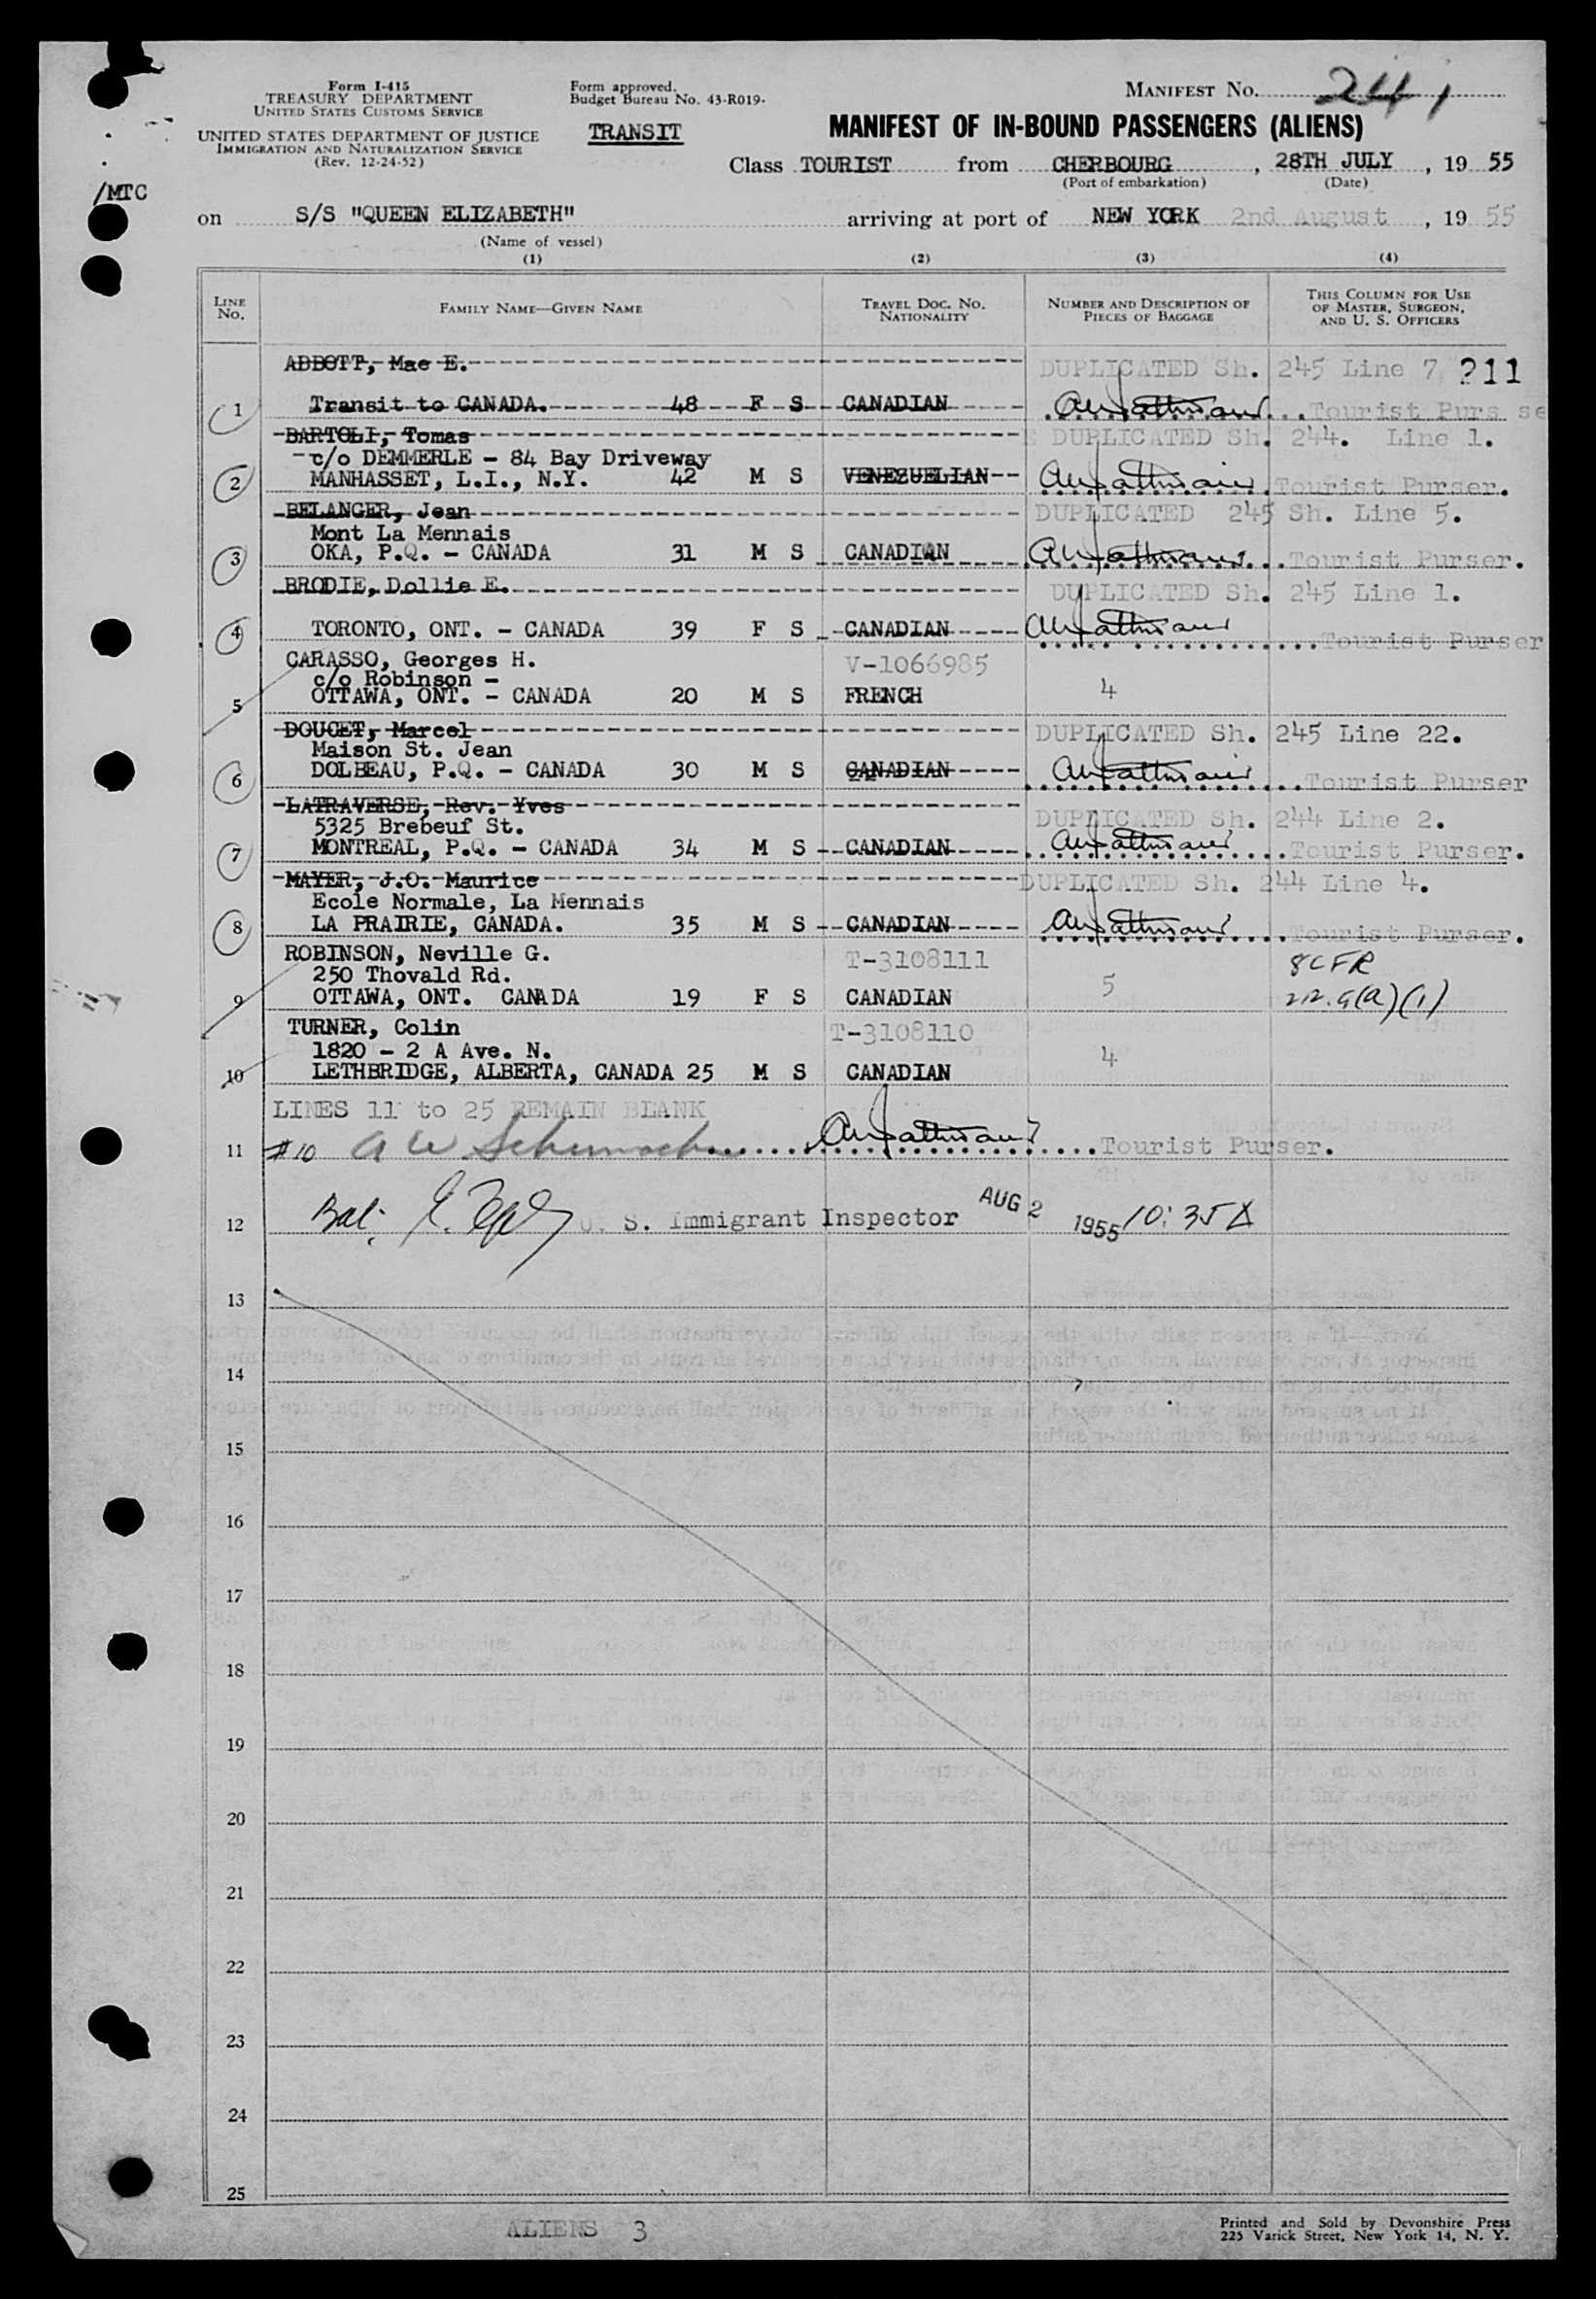 Form I-415
TREASURY DEPARTMENT
UNITED STATES CUSTOMS SERVICE
UNITED STATES DEPARTMENT OF JUSTICE
IMMIGRATION AND NATURALIZATION SERVICE
(Rev. 12-24-52)
Form approved.
Budget Bureau No. 43-R019.
TRANSIT
MANIFEST No. 241
MANIFEST OF IN-BOUND PASSENGERS (ALIENS)
Class TOURIST from CHERBOURG, 28TH JULY, 19 55
(Port of embarkation) (Date)
/MTC
on S/S "QUEEN ELIZABETH" arriving at port of NEW YORK 2nd August, 19 55
(Name of vessel)
(1) (2) (3) (4)
LINE No. FAMILY NAME—GIVEN NAME TRAVEL DOC. No. NATIONALITY NUMBER AND DESCRIPTION OF PIECES OF BAGGAGE THIS COLUMN FOR USE OF MASTER, SURGEON, AND U. S. OFFICERS
ABBOTT, Mae E. DUPLICATED Sh. 245 Line 7 211
1 Transit to CANADA. 48 F S CANADIAN Tourist Purs se
BARTOLI, Tomas DUPLICATED Sh. 244. Line 1.
c/o DEMMERLE - 84 Bay Driveway
2 MANHASSET, L.I., N.Y. 42 M S VENEZUELIAN Tourist Purser.
BELANGER, Jean DUPLICATED 245 Sh. Line 5.
Mont La Mennais
3 OKA, P.Q. - CANADA 31 M S CANADIAN Tourist Purser.
BRODIE, Dollie E. DUPLICATED Sh. 245 Line 1.
4 TORONTO, ONT. - CANADA 39 F S CANADIAN Tourist Purser
CARASSO, Georges H. V-1066985
c/o Robinson -
5 OTTAWA, ONT. - CANADA 20 M S FRENCH 4
DOUCET, Marcel DUPLICATED Sh. 245 Line 22.
Maison St. Jean
6 DOLBEAU, P.Q. - CANADA 30 M S CANADIAN Tourist Purser
LATRAVERSE, Rev. Yves
5325 Brebeuf St. DUPLICATED Sh. 244 Line 2.
7 MONTREAL, P.Q. - CANADA 34 M S CANADIAN Tourist Purser.
MAYER, J.O. Maurice DUPLICATED Sh. 244 Line 4.
Ecole Normale, La Mennais
8 LA PRAIRIE, CANADA. 35 M S CANADIAN Tourist Purser.
ROBINSON, Neville G. T-3108111 8CFR
250 Thovald Rd.
9 OTTAWA, ONT. CANADA 19 F S CANADIAN 5 212.4(a)(1)
TURNER, Colin T-3108110
1820 - 2 A Ave. N.
10 LETHBRIDGE, ALBERTA, CANADA 25 M S CANADIAN 4
LINES 11 to 25 REMAIN BLANK
11 #10 Tourist Purser.
12 Bal: U. S. Immigrant Inspector AUG 2 1955 10:35A
13
14
15
16
17
18
19
20
21
22
23
24
25
ALIENS 3
Printed and Sold by Devonshire Press
225 Varick Street, New York 14, N. Y.